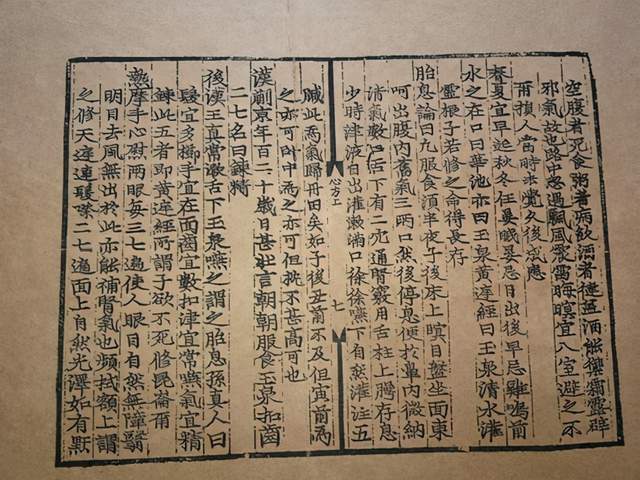 空腹者死食粥者病飲酒者徤蓋酒能禦霜露辟
邪氣故也路中忽遇飄風震雷晦暝宜入室避之不
爾損人當時未覺久後成患
春夏宜早起秋冬任晏眠晏忌日出後早忌雞鳴前
水之在口曰華池亦曰玉泉黄庭經曰玉泉清水灌
靈根子若修之命得長存
胎息論曰凡服食須半夜子後床上瞑目盤坐面東
呵出腹内舊氣三兩口然後停息便於鼻内微納
清氣數口舌下有二穴通腎竅用舌柱上腭存息
少時津液自出灌漱滿口徐徐嚥下自然灌注五
心方上 七
臟此爲氣歸丹田矣如子後丑前不及但寅前爲
之亦可卧中爲之亦可但枕不甚高可也
漢蒯京年百二十歲日甚壯言朝朝服食玉泉扣齒
二七名曰鍊精
後漢王真常漱舌下玉泉嚥之謂之胎息孫真人曰
髮宜多櫛手宜在面齒宜數扣津宜常嚥氣宜精
鍊此五者即黄庭經所謂子欲不死修崑崙爾
熱摩手心熨兩眼每三七遍使人眼目自然無障翳
明目去風無出於此亦能補腎氣也頻拭額上謂
之修天庭連髮嚥二七遍面上自然光澤如有點